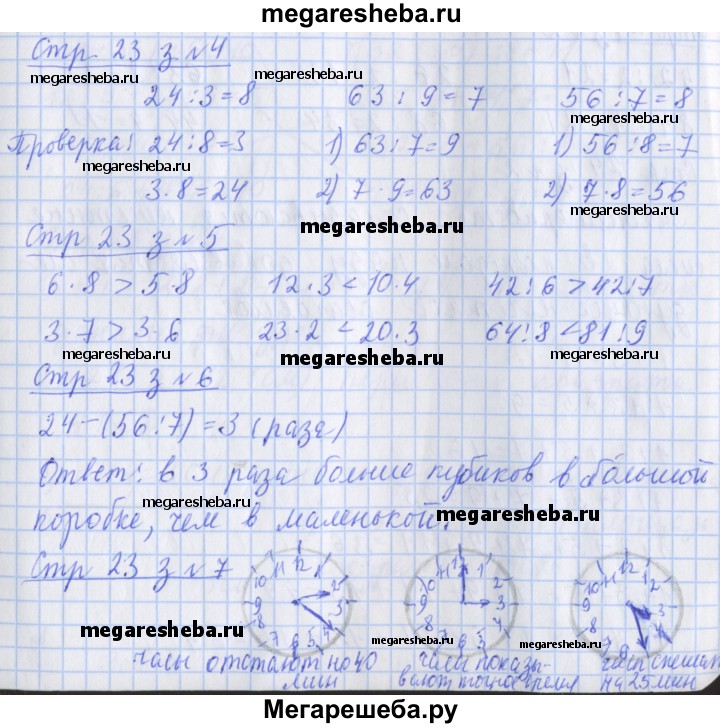 megaresheba.ru
Стр 23 з №4
megaresheba.ru megaresheba.ru
24:3=8 63:9=7 56:7=8
Проверка: 24:8=3 1) 63:7=9 1) 56:8=7
megaresheba.ru
3·8=24 2) 7·9=63 2) 7·8=56
megaresheba.ru megaresheba.ru
Стр 23 з №5
6·8>5·8 12·3<10·4 42:6>42:7
3·7>3·6 23·2<20·3 64:8<81:9
megaresheba.ru megaresheba.ru megaresheba.ru
Стр 23 з №6
24-(56:7)=3 (раза)
Ответ: в 3 раза больше кубиков в большой
megaresheba.ru megaresheba.ru
коробке, чем в маленькой.
Стр 23 з №7
megaresheba.ru megaresheba.ru megaresheba.ru
часы отстают на 40 часы показы- часы спешат
мин вают точное время на 25 мин
Мегарешеба.ру